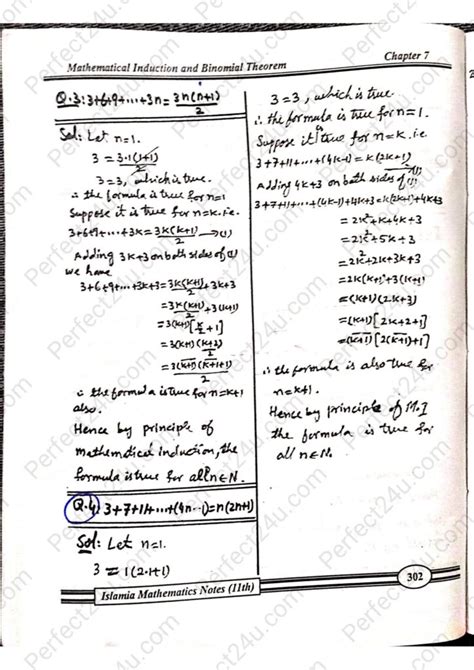 Mathematical Induction and Binomial Theorem
Chapter 7
Q.3: 3+6+9+...+3n = 3n(n+1)/2
Sol: Let n=1.
3 = 3·1(1+1)/2
3=3, which is true.
∴ the formula is true for n=1
Suppose it is true for n=k. i.e.
3+6+9+...+3k = 3k(k+1)/2 → (1)
Adding 3k+3 on both sides of (1)
we have
3+6+9+...+3k+3 = 3k(k+1)/2 + 3k+3
= 3k(k+1)/2 + 3(k+1)
= 3(k+1)[k/2 + 1]
= 3(k+1)(k+2)/2
= 3(k+1)(k+1+1)/2
∴ the formula is true for n=k+1
also.
Hence by principle of
mathematical induction, the
formula is true for all n∈N.
Q.4: 3+7+11+...+(4n-1)=n(2n+1)
Sol: Let n=1.
3 = 1(2·1+1)
3=3, which is true
∴ the formula is true for n=1.
Suppose it true for n=k. i.e
3+7+11+...+(4k-1)=k(2k+1)
(1)
Adding 4k+3 on both sides of (1),
3+7+11+...+(4k-1)+4k+3=k(2k+1)+4k+3
= 2k²+k+4k+3
= 2k²+5k+3
= 2k²+2k+3k+3
= 2k(k+1)+3(k+1)
= (k+1)(2k+3)
= (k+1)[2k+2+1]
= (k+1)[2(k+1)+1]
∴ the formula is also true for
n=k+1.
Hence by principle of M.I
the formula is true for
all n∈N.
Islamia Mathematics Notes (11th)
302
Perfect24u.com